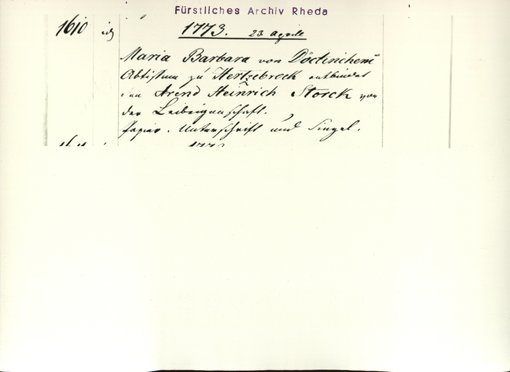 Fürstliches Archiv Rheda
1610
1773. 23 April
Maria Barbara von
Äbtissin zu Hertzebrock entbindet
den Arend Heinrich Storck von
der Leibeigenschaft.
Papier. Unterschrift und Siegel.